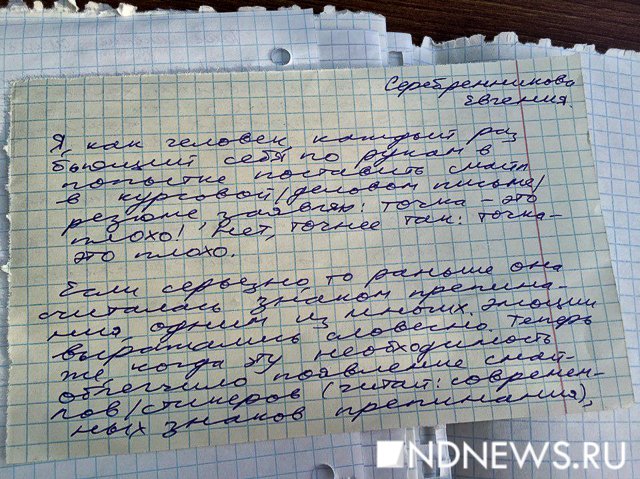 Серебренникова
Евгения.
Я, как человек каждый раз
бьющий себя по рукам в
попытке поставить смайл
в курсовой/деловом письме/
резюме заявляю: точка – это
плохо! Нет, точнее так: точка-
это плохо.
Если серьезно, то раньше она
считалась знаком препина-
ния, одним из многих. Эмоции
выражались словесно. Теперь
же, когда эту необходимость
облегчило появление смай-
лов/стикеров (читай: современ-
ных знаков препинания),
NDNEWS.RU